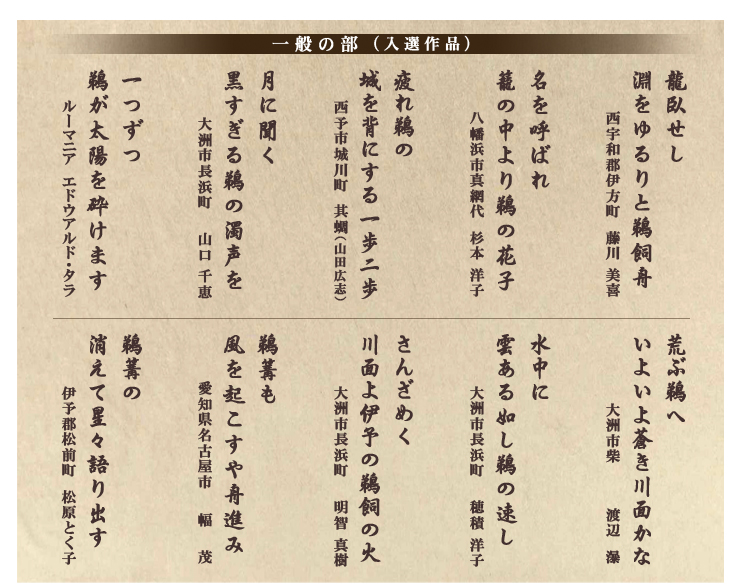 一般の部（入選作品）
龍臥せし
淵をゆるりと鵜飼舟
西宇和郡伊方町　藤川 美喜
名を呼ばれ
籠の中より鵜の花子
八幡浜市真網代　杉本 洋子
疲れ鵜の
城を背にする一歩二歩
西予市城川町　其蜩（山田広志）
月に聞く
黒すぎる鵜の濁声を
大洲市長浜町　山口 千恵
一つずつ
鵜が太陽を砕けます
ルーマニア　エドウアルド・タラ
荒ぶ鵜へ
いよいよ蒼き川面かな
大洲市柴　渡辺 瀑
水中に
雲ある如し鵜の速し
大洲市長浜町　穂積 洋子
さんざめく
川面よ伊予の鵜飼の火
大洲市長浜町　明智 真樹
鵜篝も
風を起こすや舟進み
愛知県名古屋市　幅 茂
鵜篝の
消えて星々語り出す
伊予郡松前町　松原とく子